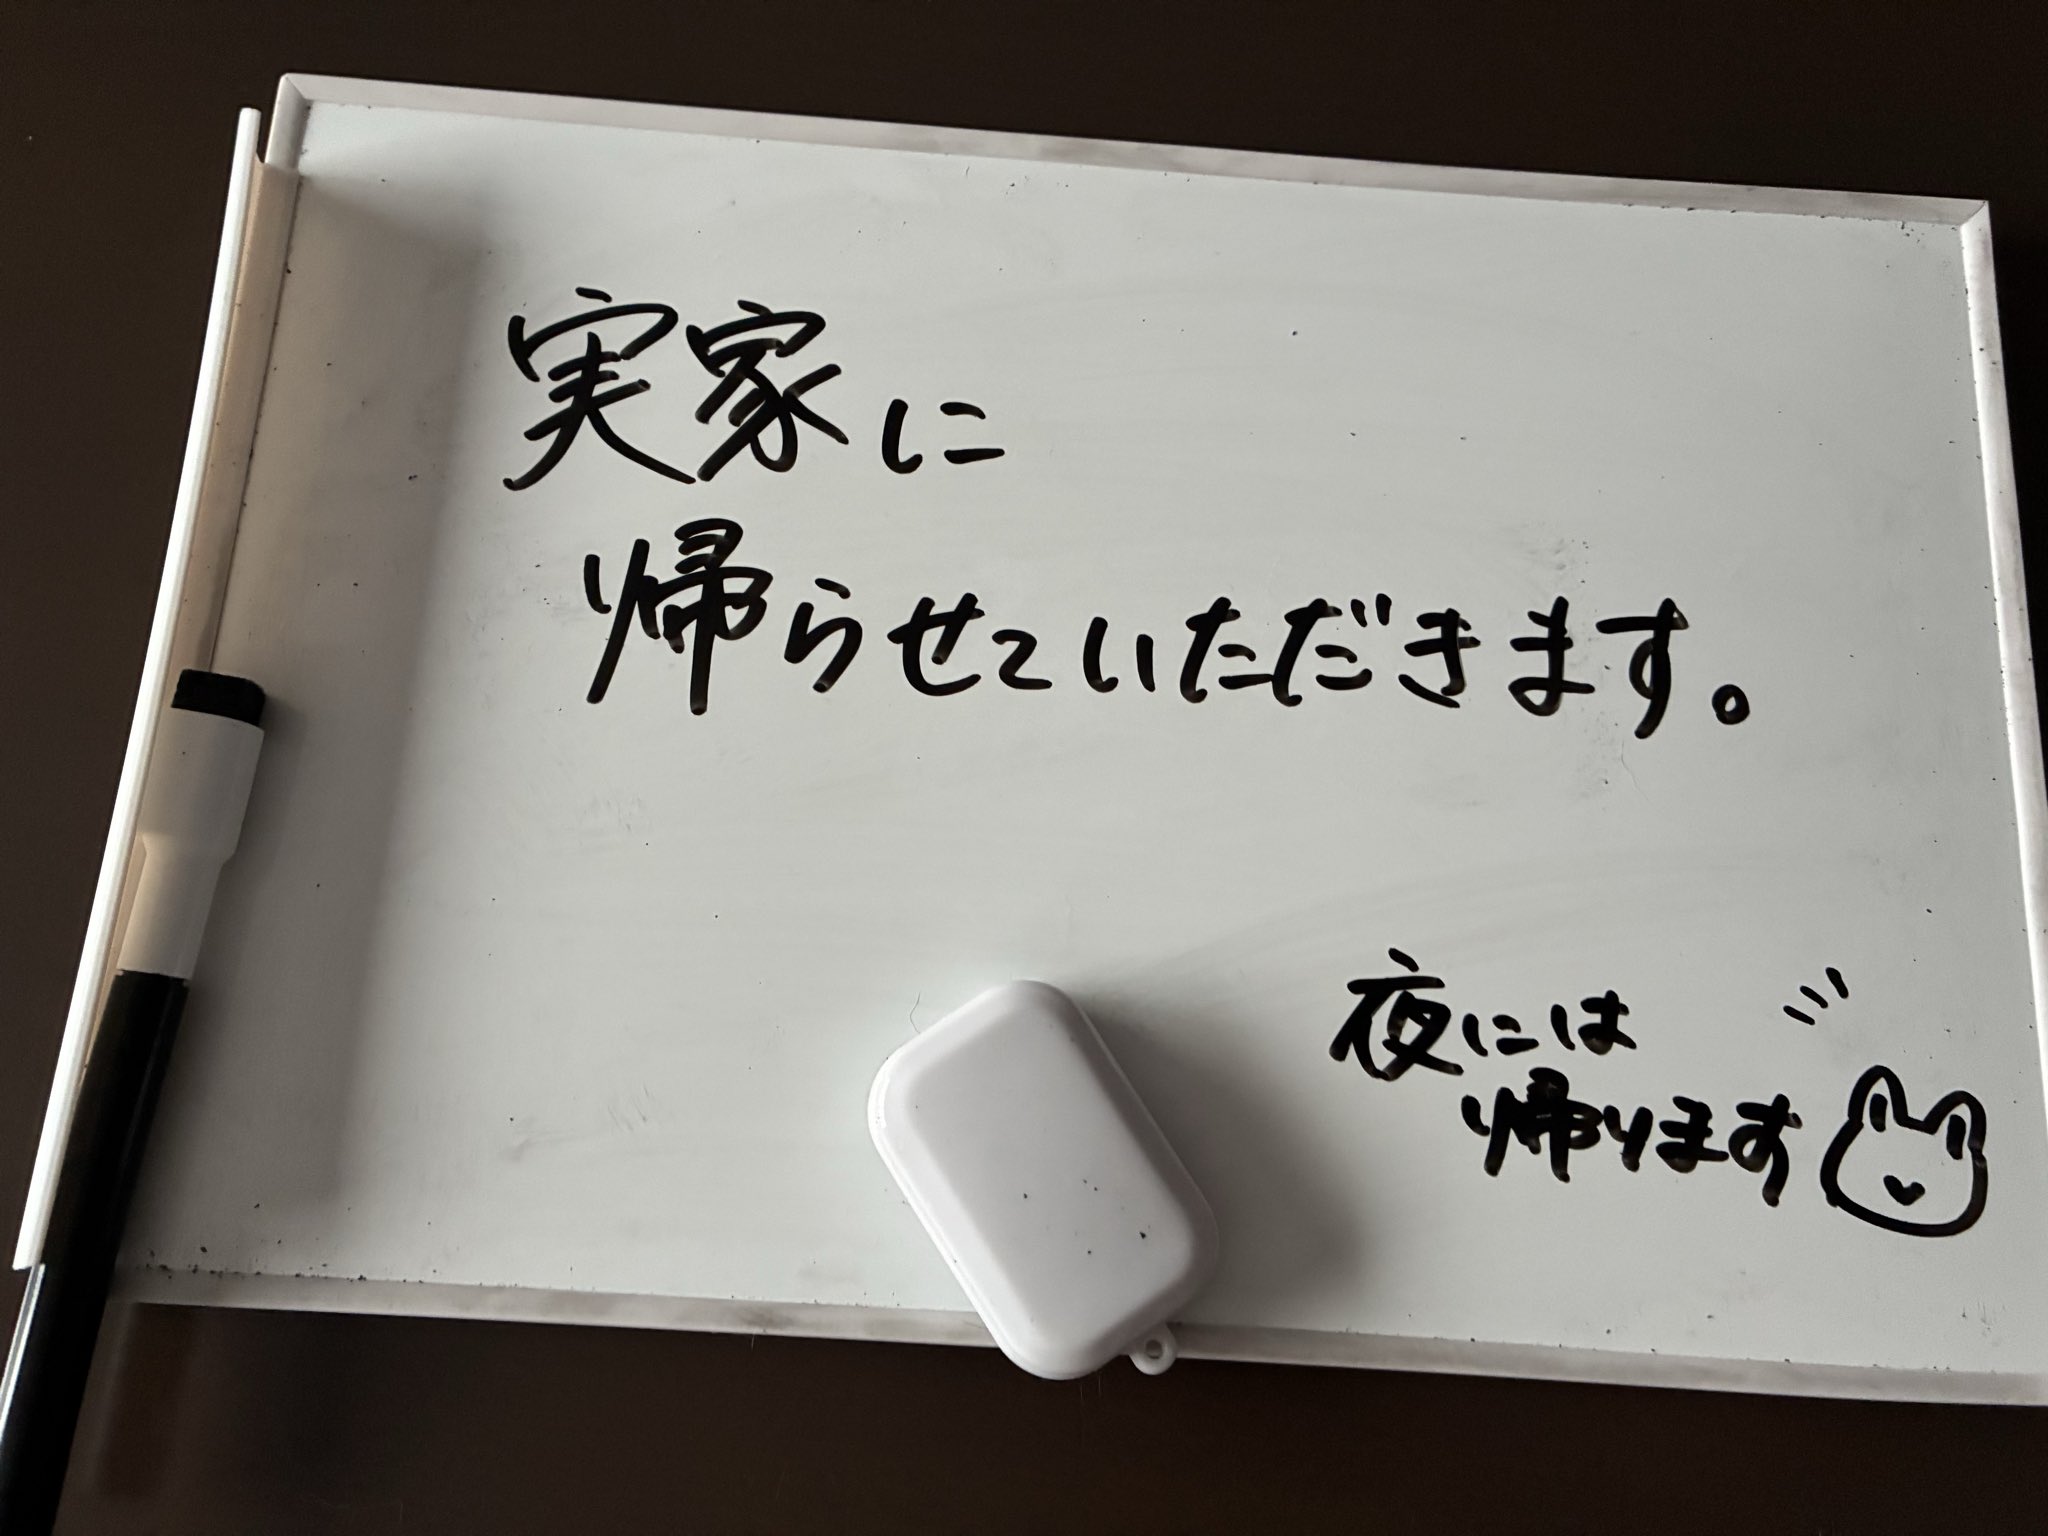 実家に
帰らせていただきます。
夜には
帰ります